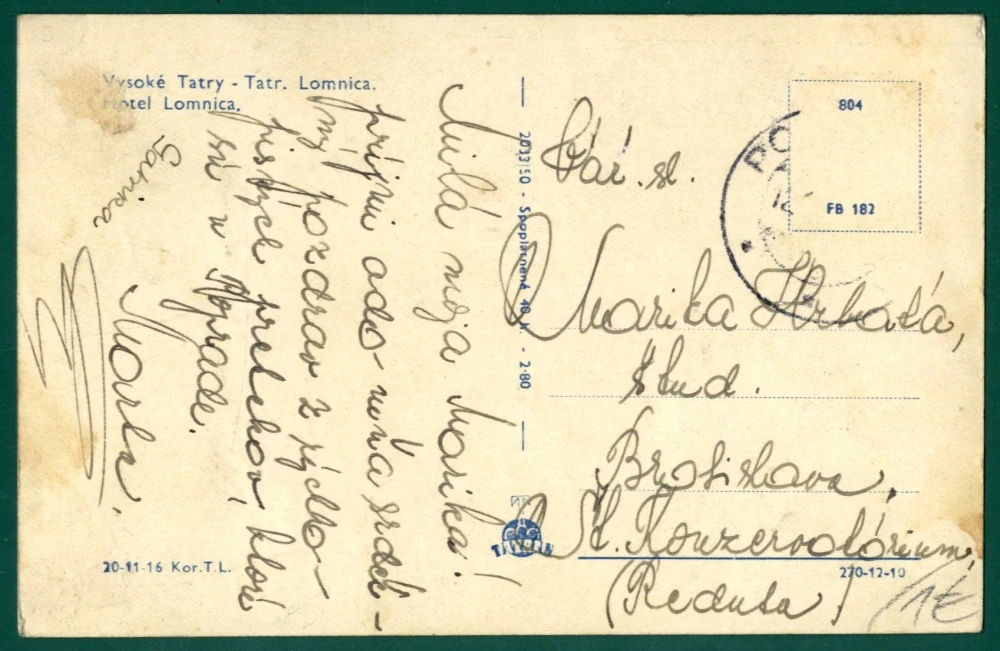 Vysoké Tatry - Tatr. Lomnica.
Hotel Lomnica.
Milá moja Marika!
prijmi odo mňa srdeč-
ný pozdrav z rýchlo-
pisných pretekov, ktoré
sú v Poprade.
Marta.
2033/50 - Spoplatnené 40 h. - 2·80
TATRAN
20-11-16 Kor.T.L.
804
FB 182
PO
Váž. sl.
Marika Hrbatá,
štud.
Bratislava,
Št. Konzervatórium,
(Reduta)
270-12-10
1€